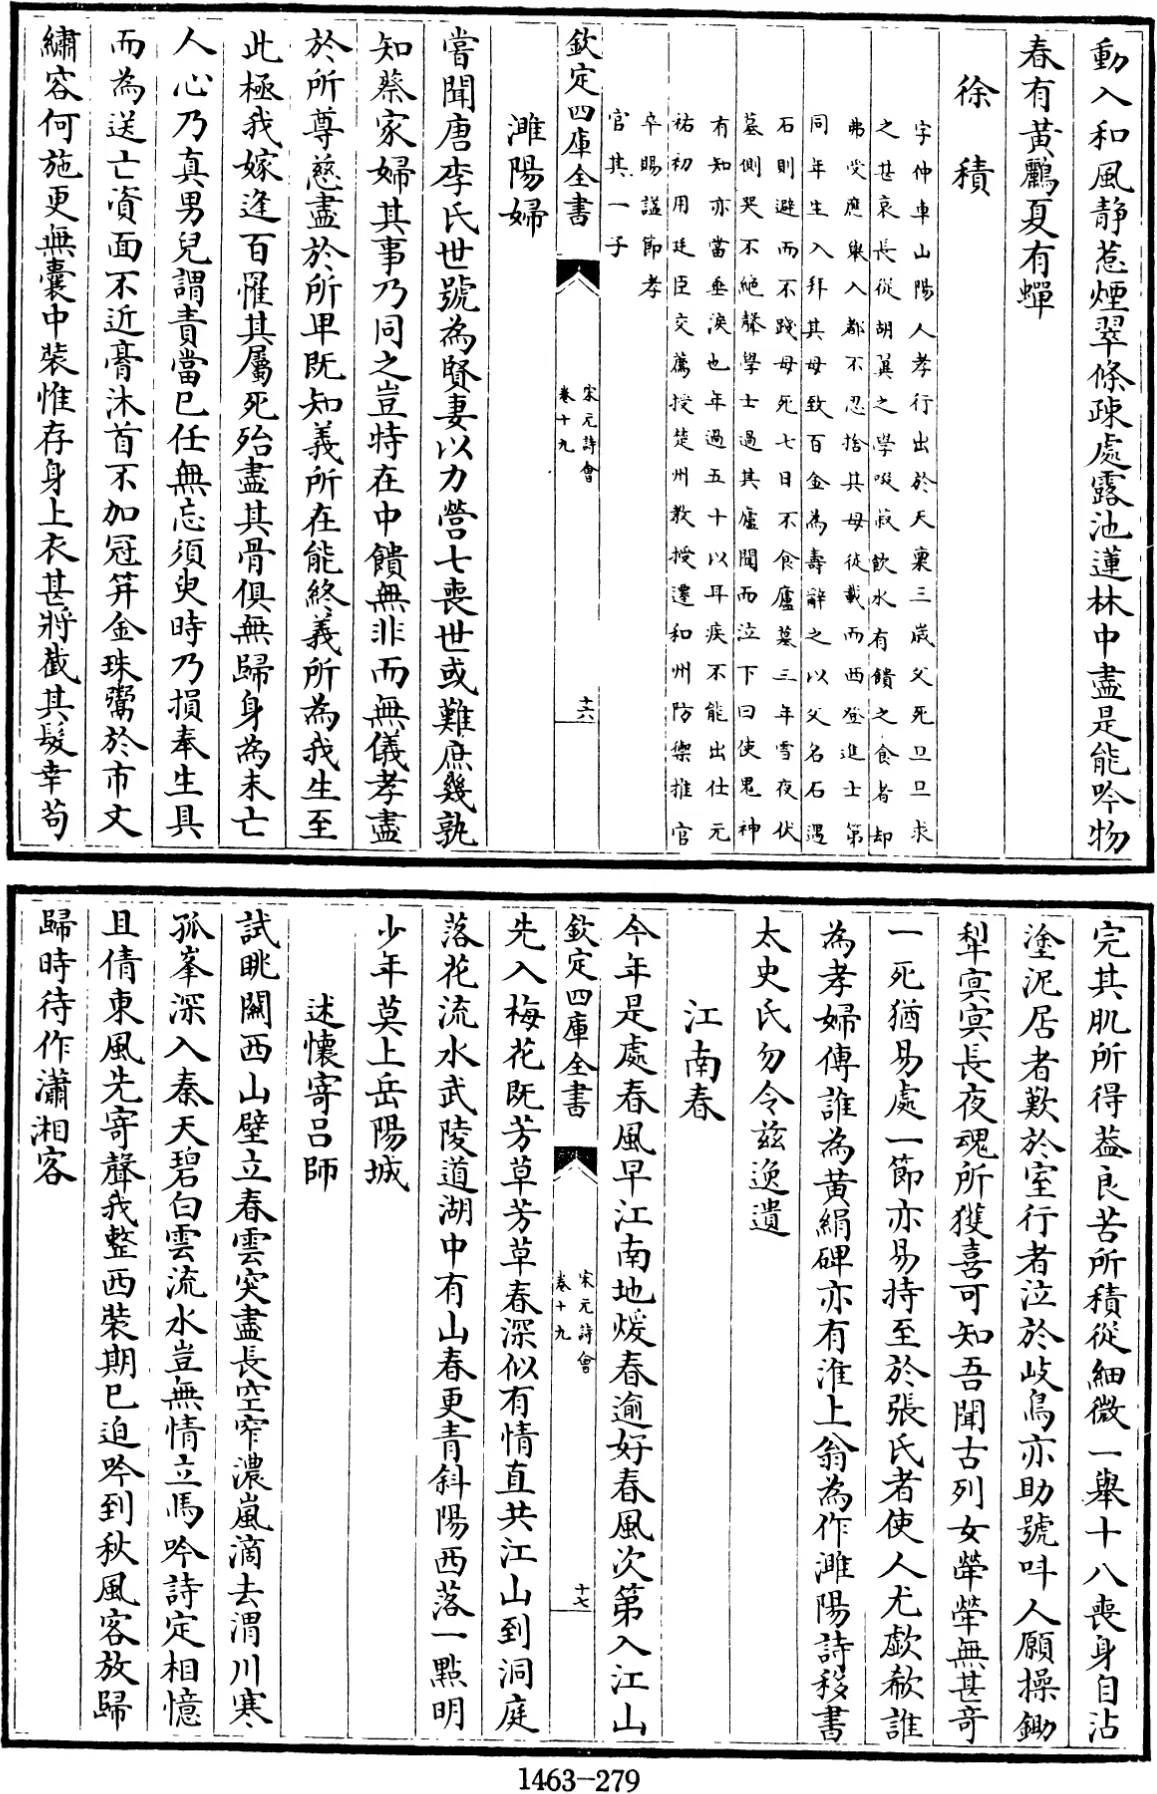 動入和風静惹煙翠條疎處露池蓮林中盡是能吟物
春有黄鸝夏有蟬
徐積
字仲車山陽人孝行出於天稟三歲父死旦旦求
之甚哀長從胡翼之學啜菽飲水有饋之食者却
弗受應舉入都不忍捨其母徒載而西登進士第
同年生入拜其母致百金為壽辭之以父名石遇
石則避而不踐母死七日不食廬墓三年雪夜伏
墓側哭不絶聲學士過其廬聞而泣下曰使鬼神
有知亦當垂淚也年過五十以耳疾不能出仕元
祐初用廷臣交薦授楚州教授遷和州防禦推官
卒賜諡節孝
官其一子
欽定四庫全書
宋元詩會
卷十九
十六
濉陽婦
嘗聞唐李氏世號為賢妻以力營七喪世或難庶幾孰
知蔡家婦其事乃同之豈特在中饋無非而無儀孝盡
於所尊慈盡於所卑既知義所在能終義所為我生至
此極我嫁逢百罹其屬死殆盡其骨俱無歸身為未亡
人心乃真男兒謂責當已任無忘須臾時乃損奉生具
而為送亡資面不近膏沐首不加冠笄金珠鬻於市文
繡容何施更無囊中裝惟存身上衣甚將截其髮幸苟
完其肌所得益良苦所積從細微一舉十八喪身自沾
塗泥居者歎於室行者泣於岐鳥亦助號呌人願操鋤
犂冥冥長夜魂所獲喜可知吾聞古列女犖犖無甚奇
一死猶易處一節亦易持至於張氏者使人尤歔欷誰
為孝婦傳誰為黄絹碑亦有淮上翁為作濉陽詩移書
太史氏勿令兹逸遺
江南春
今年是處春風早江南地煖春逾好春風次第入江山
欽定四庫全書
宋元詩會
卷十九
十七
先入梅花既芳草芳草春深似有情直共江山到洞庭
落花流水武陵道湖中有山春更青斜陽西落一點明
少年莫上岳陽城
述懷寄呂師
試眺闗西山壁立春雲突盡長空窄濃嵐滴去渭川寒
孤峯深入秦天碧白雲流水豈無情立馬吟詩定相憶
且倩東風先寄聲我整西裝期已迫吟到秋風客放歸
歸時待作瀟湘客
1463-279